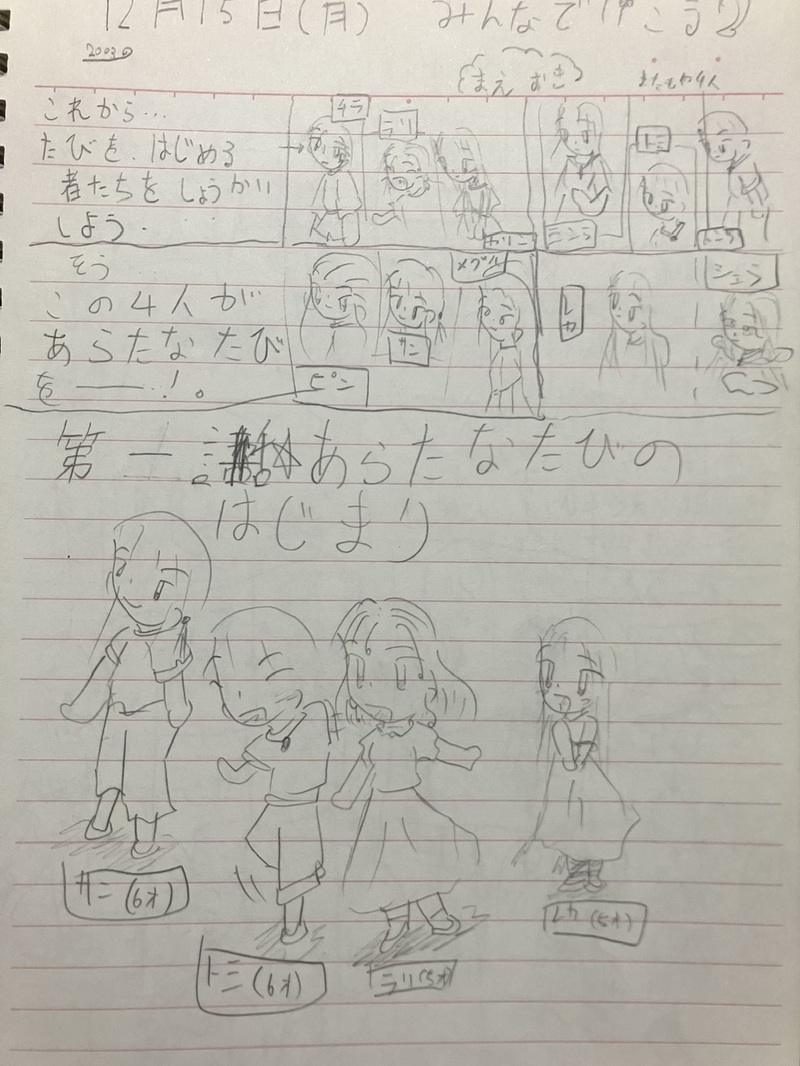 12月15日(月) みんなでいこう2
2003の
まえおき
またもや4人
これから…
たびを、はじめる
者たちをしょうかい
しよう.
チラ
ラリ
カリン
ミンミ
トミ
そう
この4人が
あらたなたび
を――!。
ピン
サニ
メグル
レカ
シェラ
第一話 あらたなたびの
はじまり
サニ(6才)
トミ(6才)
ラリ(5才)
レカ(5才)